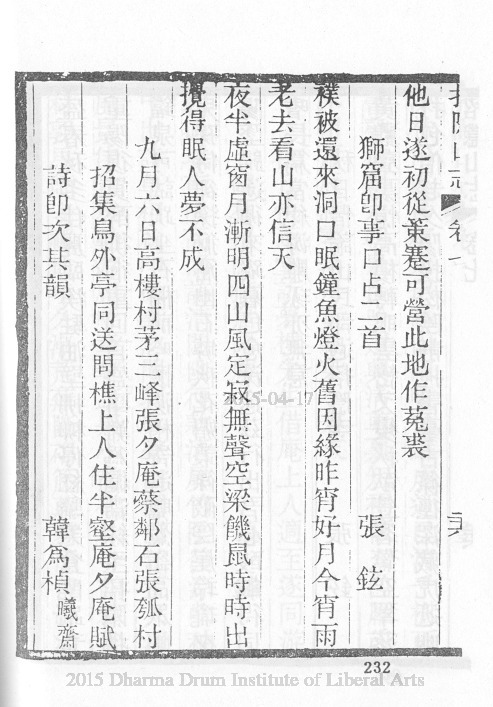 他日遂初從䇿蹇可營此地作菟裘
獅窟卽事口占二首
張鉉
襆被還來洞口眠鐘魚燈火舊因緣昨宵好月今宵雨
老去看山亦信天
夜半虛窗月漸明四山風定寂無聲空梁饑鼠時時出
攪得眠人夢不成
九月六日高樓村茅三峰張夕庵蔡鄰石張瓠村
招集鳥外亭同送問樵上人住半壑庵夕庵賦
詩卽次其韻
韓爲楨 曦齋
232
2015-04-17
2015 Dharma Drum Institute of Liberal Arts